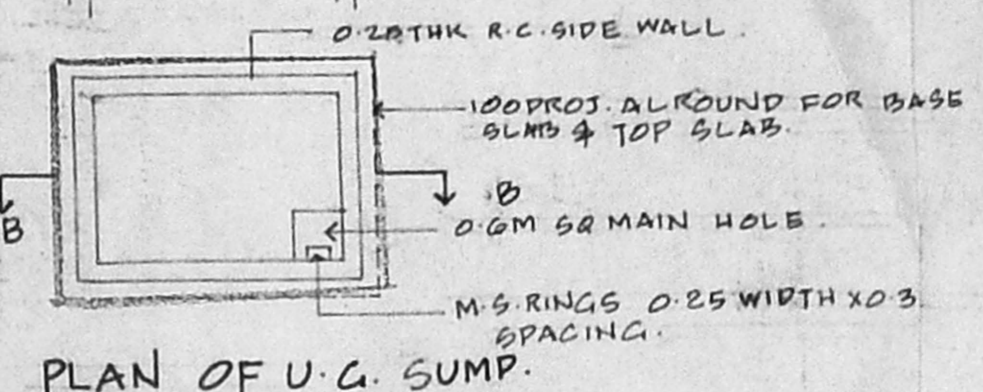 0.20THK R.C. SIDE WALL.
100PROJ. ALROUND FOR BASE
SLAB & TOP SLAB.
B
B
0.6M SQ MAIN HOLE.
M.S. RINGS 0.25 WIDTH X0.3
SPACING.
PLAN OF U.G. SUMP.